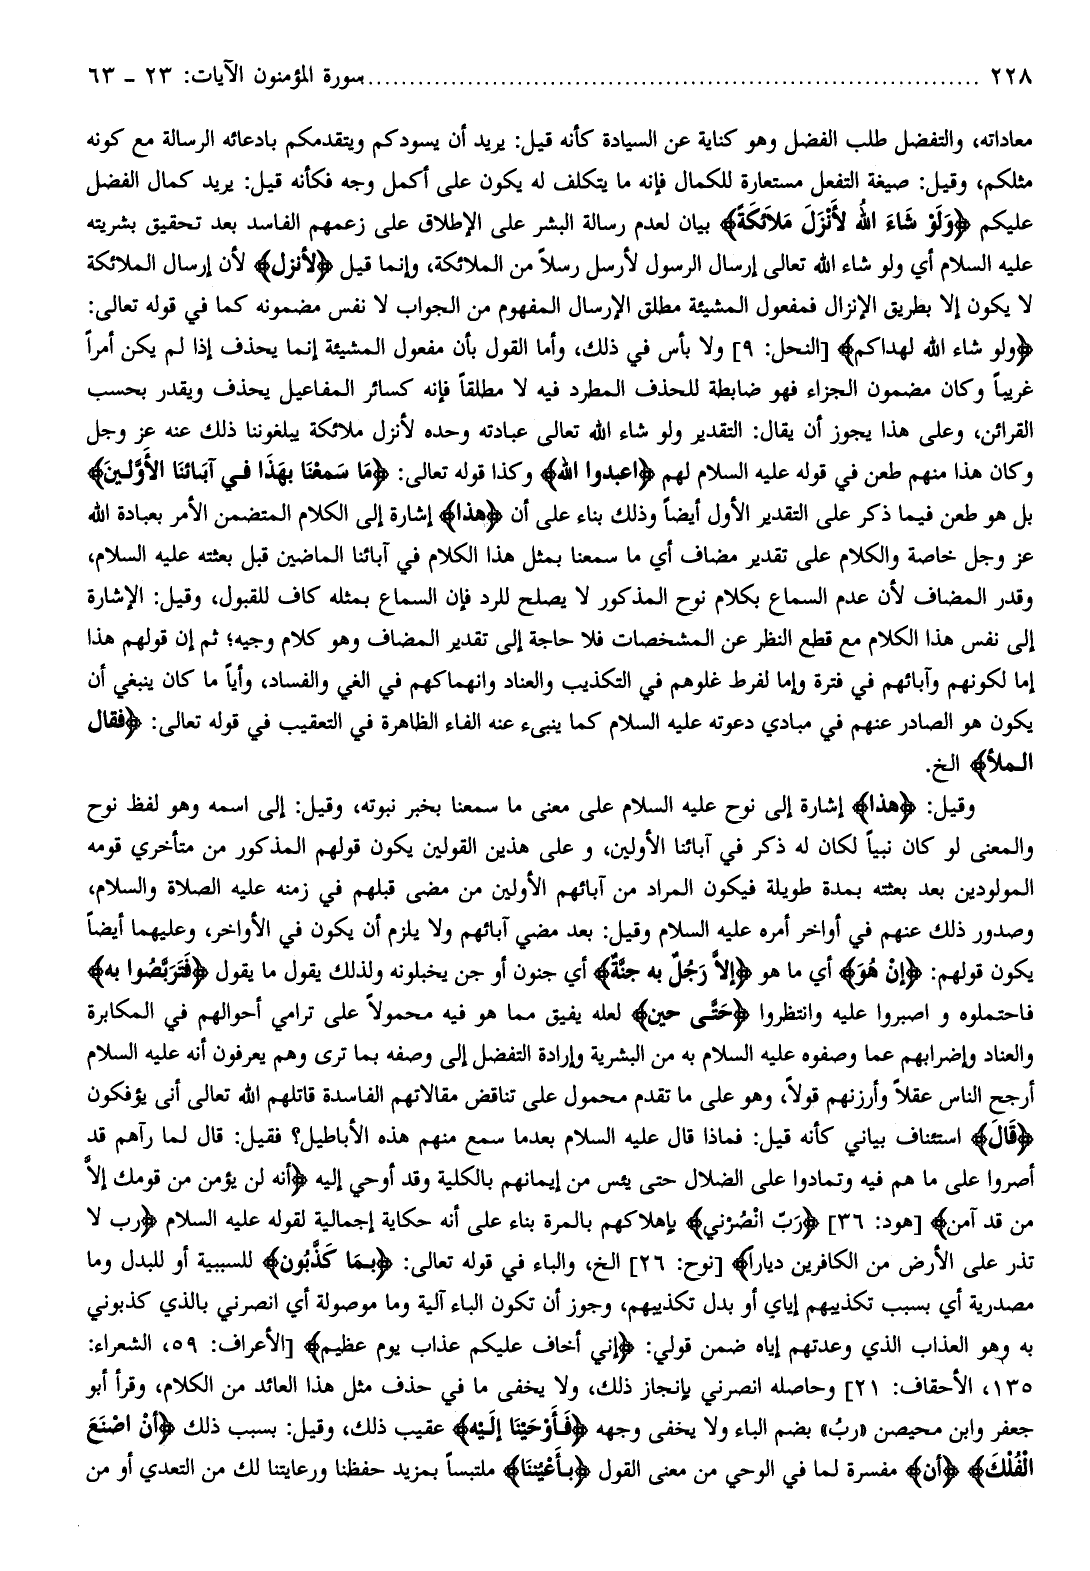 ٢٢٨ ........................................ سورة المؤمنون الآيات: ٢٣ ـ ٦٣
معاداته، والتفضل طلب الفضل وهو كناية عن السيادة كأنه قيل: يريد أن يسودكم ويتقدمكم بادعائه الرسالة مع كونه
مثلكم، وقيل: صيغة التفعل مستعارة للكمال فإنه ما يتكلف له يكون على أكمل وجه فكأنه قيل: يريد كمال الفضل
عليكم ﴿وَلَوْ شَاءَ اللهُ لأَنْزَلَ مَلاَئكَةً﴾ بيان لعدم رسالة البشر على الإطلاق على زعمهم الفاسد بعد تحقيق بشريته
عليه السلام أي ولو شاء الله تعالى إرسال الرسول لأرسل رسلاً من الملائكة، وإنما قيل ﴿لأنزل﴾ لأن إرسال الملائكة
لا يكون إلا بطريق الإنزال فمفعول المشيئة مطلق الإرسال المفهوم من الجواب لا نفس مضمونه كما في قوله تعالى:
﴿ولو شاء الله لهداكم﴾ [النحل: ٩] ولا بأس في ذلك، وأما القول بأن مفعول المشيئة إنما يحذف إذا لم يكن أمراً
غريباً وكان مضمون الجزاء فهو ضابطة للحذف المطرد فيه لا مطلقاً فإنه كسائر المفاعيل يحذف ويقدر بحسب
القرائن، وعلى هذا يجوز أن يقال: التقدير ولو شاء الله تعالى عبادته وحده لأنزل ملائكة يبلغوننا ذلك عنه عز وجل
وكان هذا منهم طعن في قوله عليه السلام لهم ﴿اعبدوا الله﴾ وكذا قوله تعالى: ﴿مَا سَمعْنَا بهَذَا فـي آبَائنَا الأَوَّلـينَ﴾
بل هو طعن فيما ذكر على التقدير الأول أيضاً وذلك بناء على أن ﴿هذا﴾ إشارة إلى الكلام المتضمن الأمر بعبادة الله
عز وجل خاصة والكلام على تقدير مضاف أي ما سمعنا بمثل هذا الكلام في آبائنا الماضين قبل بعثته عليه السلام،
وقدر المضاف لأن عدم السماع بكلام نوح المذكور لا يصلح للرد فإن السماع بمثله كاف للقبول، وقيل: الإشارة
إلى نفس هذا الكلام مع قطع النظر عن المشخصات فلا حاجة إلى تقدير المضاف وهو كلام وجيه؛ ثم إن قولهم هذا
إما لكونهم وآبائهم في فترة وإما لفرط غلوهم في التكذيب والعناد وانهماكهم في الغي والفساد، وأياً ما كان ينبغي أن
يكون هو الصادر عنهم في مبادي دعوته عليه السلام كما ينبىء عنه الفاء الظاهرة في التعقيب في قوله تعالى: ﴿فقال
الـملأ﴾ الخ.
وقيل: ﴿هذا﴾ إشارة إلى نوح عليه السلام على معنى ما سمعنا بخبر نبوته، وقيل: إلى اسمه وهو لفظ نوح
والمعنى لو كان نبياً لكان له ذكر في آبائنا الأولين، و على هذين القولين يكون قولهم المذكور من متأخري قومه
المولودين بعد بعثته بمدة طويلة فيكون المراد من آبائهم الأولين من مضى قبلهم في زمنه عليه الصلاة والسلام،
وصدور ذلك عنهم في أواخر أمره عليه السلام وقيل: بعد مضي آبائهم ولا يلزم أن يكون في الأواخر، وعليهما أيضاً
يكون قولهم: ﴿إنْ هُوَ﴾ أي ما هو ﴿إلاَّ رَجُلٌ به جنَّةٌ﴾ أي جنون أو جن يخبلونه ولذلك يقول ما يقول ﴿فَتَرَبَّصُوا به﴾
فاحتملوه و اصبروا عليه وانتظروا ﴿حَتَّـى حين﴾ لعله يفيق مما هو فيه محمولاً على ترامي أحوالهم في المكابرة
والعناد وإضرابهم عما وصفوه عليه السلام به من البشرية وإرادة التفضل إلى وصفه بما ترى وهم يعرفون أنه عليه السلام
أرجح الناس عقلاً وأرزنهم قولاً، وهو على ما تقدم محمول على تناقض مقالاتهم الفاسدة قاتلهم الله تعالى أنى يؤفكون
﴿قَالَ﴾ استئناف بياني كأنه قيل: فماذا قال عليه السلام بعدما سمع منهم هذه الأباطيل؟ فقيل: قال لما رآهم قد
أصروا على ما هم فيه وتمادوا على الضلال حتى يئس من إيمانهم بالكلية وقد أوحي إليه ﴿أنه لن يؤمن من قومك إلاَّ
من قد آمن﴾ [هود: ٣٦] ﴿رَبّ انْصُرْني﴾ بإهلاكهم بالمرة بناء على أنه حكاية إجمالية لقوله عليه السلام ﴿رب لا
تذر على الأرض من الكافرين دياراً﴾ [نوح: ٢٦] الخ، والباء في قوله تعالى: ﴿بـمَا كَذَّبُون﴾ للسببية أو للبدل وما
مصدرية أي بسبب تكذيبهم إياي أو بدل تكذيبهم، وجوز أن تكون الباء آلية وما موصولة أي انصرني بالذي كذبوني
به وهو العذاب الذي وعدتهم إياه ضمن قولي: ﴿إني أخاف عليكم عذاب يوم عظيم﴾ [الأعراف: ٥٩، الشعراء:
١٣٥، الأحقاف: ٢١] وحاصله انصرني بإنجاز ذلك، ولا يخفى ما في حذف مثل هذا العائد من الكلام، وقرأ أبو
جعفر وابن محيصن «ربُ» بضم الباء ولا يخفى وجهه ﴿فَأَوْحَيْنَا إلَيْه﴾ عقيب ذلك، وقيل: بسبب ذلك ﴿أَنْ اصْنَعَ
الْفُلْكَ﴾ ﴿أن﴾ مفسرة لما في الوحي من معنى القول ﴿بـأَعْيُننَا﴾ ملتبساً بمزيد حفظنا ورعايتنا لك من التعدي أو من